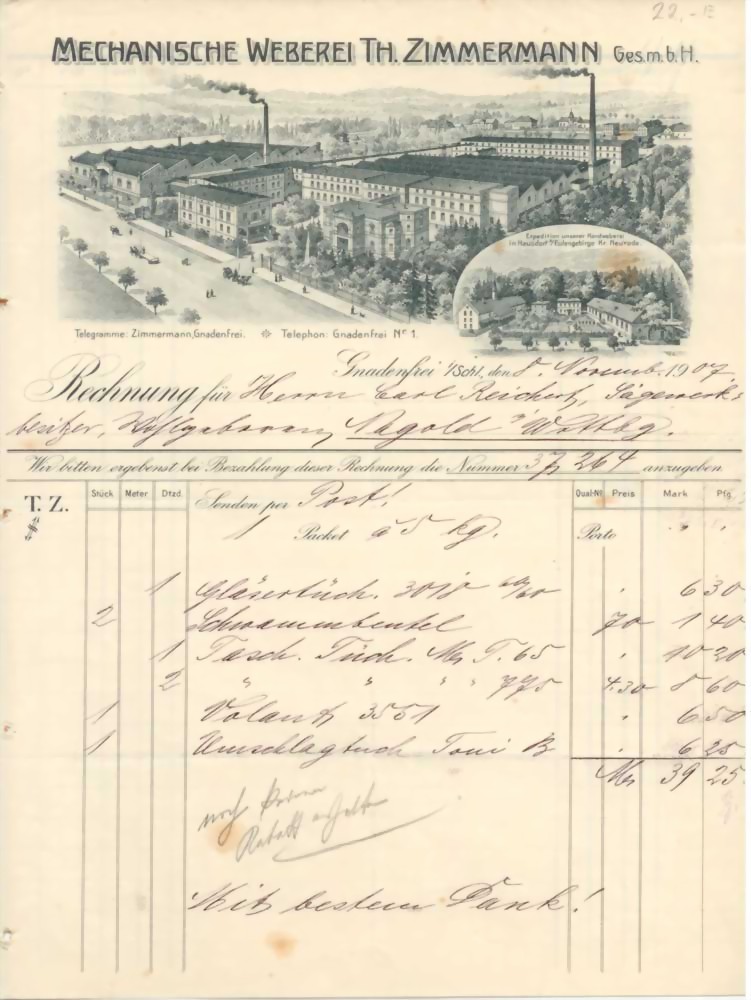 22,-
MECHANISCHE WEBEREI TH. ZIMMERMANN Ges.m.b.H.
Expedition unserer Handweberei
in Hausdorf a/Eulengebirge Kr. Neurode.
Telegramme: Zimmermann, Gnadenfrei. Telephon: Gnadenfrei No 1.
Gnadenfrei i/Schl., den 8. Novemb. 1907
Rechnung für Herrn Carl Reichert, Sägewerk-
besitzer, Wohlgeboren, Nagold i/Wttbg.
Wir bitten ergebenst bei Bezahlung dieser Rechnung die Nummer 37264 anzugeben
T. Z. Stück Meter Dtzd. Senden per Post! Qual-No Preis Mark Pfg.
1 Packet à 5 kg. Porto
1 Gläsertüch. 3018 60/60 6 30
2 Schwammbeutel 70 1 40
1 Tasch. Tüch. T. 65 10 20
2 " " " " 775 4.30 8 60
1 Volant 3551 6 50
1 Umschlagtuch Toni B 6 25
Mk 39 25
noch keinen
Rabatt erhalten
Mit bestem Dank!